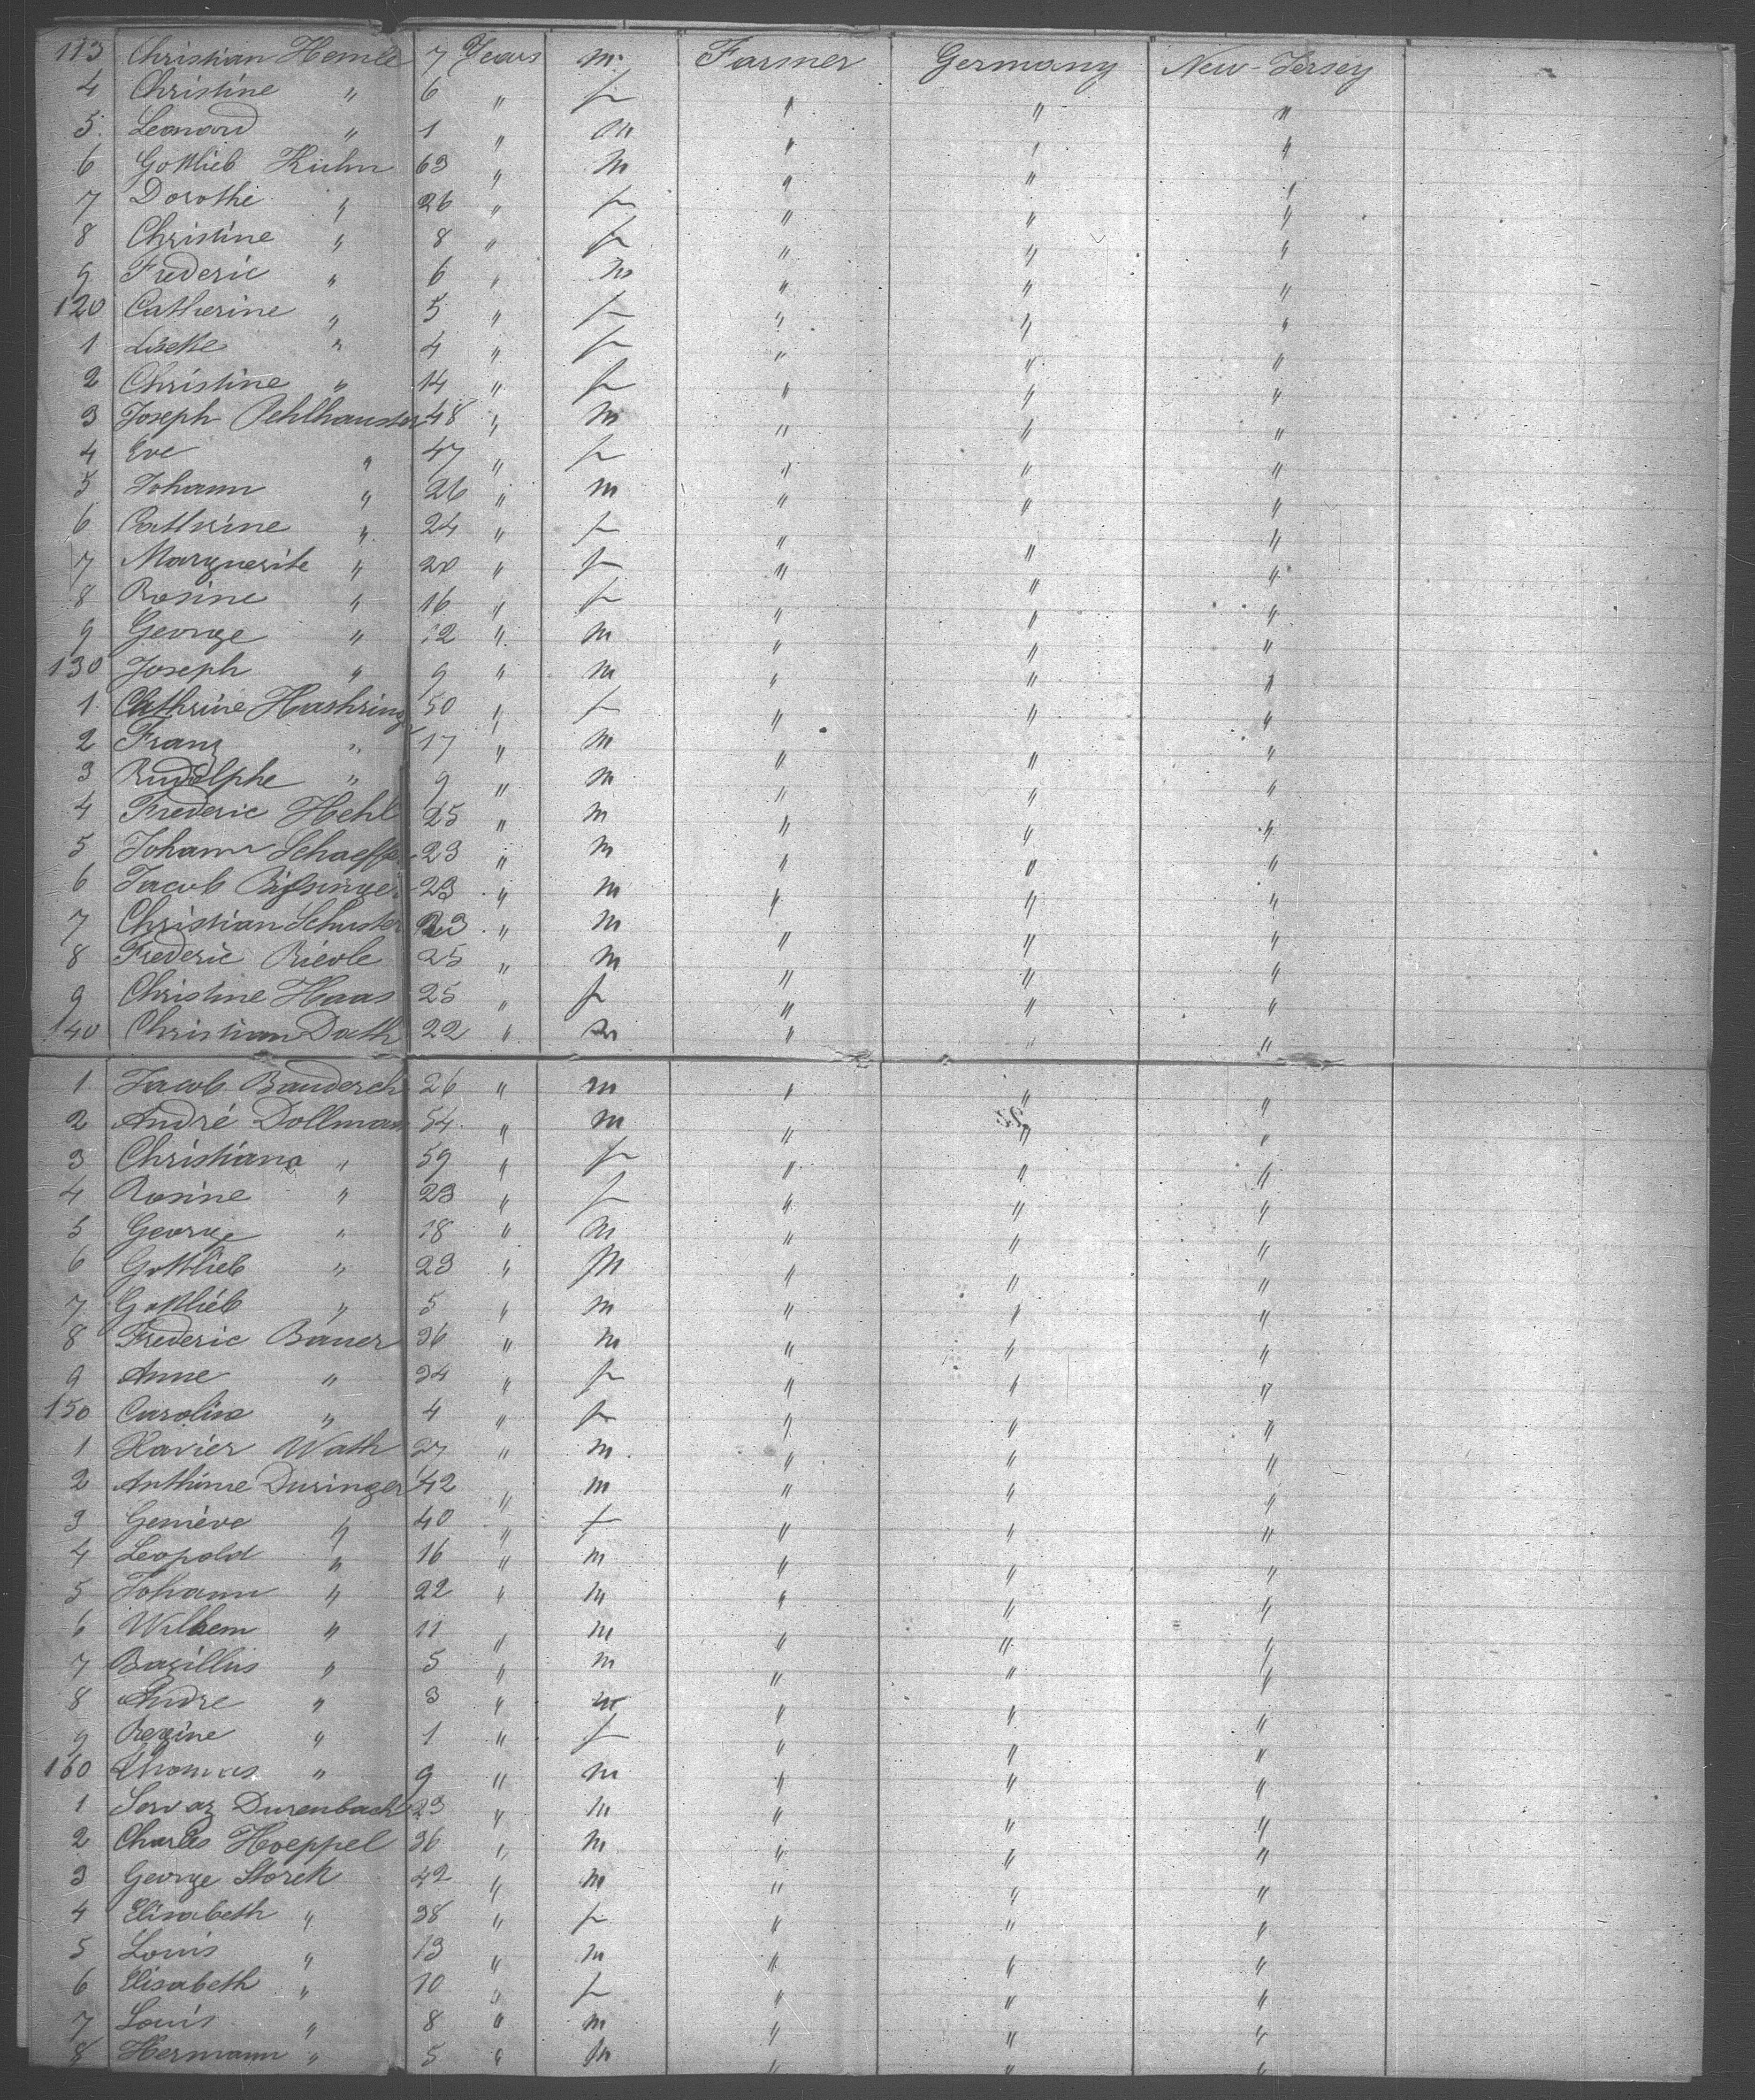 113 Christian Hemle 7 Years m. Farmer Germany New-Jersey
4 Christine " 6 " f " " "
5. Leonard " 1 " m " " "
6 Gottlieb Kuhn 63 " m " " "
7 Dorothe " 26 " f " " "
8 Christine " 8 " f " " "
9 Frederic " 6 " m " " "
120 Catherine " 5 " f " " "
1 Lisette " 4 " f " " "
2 Christine " 14 " f " " "
3 Joseph 48 " m " " "
4 Eve " 47 " f " " "
5 Johann " 26 " m " " "
6 Cathrine " 24 " f " " "
7 Marguerite " 20 " f " " "
8 Rosine " 16 " f " " "
9 George " 12 " m " " "
130 Joseph " 9 " m " " "
1 Cathrine Hashring 50 " f " " "
2 Franz " 17 " m " " "
3 Rudolphe " 9 " m " " "
4 Frederic Hehl 25 " m " " "
5 Johann Schaeffer 23 " m " " "
6 Jacob 23 " m " " "
7 Christian Schuster 23 " m " " "
8 Frederic Rieble 25 " m " " "
9 Christine Haas 25 " f " " "
140 Christian Dath 22 " m " " "
1 Jacob Bauderck 26 " m " " "
2 André Dollmann 54 " m " " "
3 Christiana " 59 " f " " "
4 Rosine " 23 " f " " "
5 George " 18 " m " " "
6 Gottlieb " 23 " m " " "
7 Gottlieb " 5 " m " " "
8 Frederic Bauer 36 " m " " "
9 Anne " 34 " f " " "
150 Caroline " 4 " f " " "
1 Xavier Wath 27 " m " " "
2 Anthime Duringer 42 " m " " "
3 Geniève " 40 " f " " "
4 Leopold " 16 " m " " "
5 Johann " 22 " m " " "
6 Wilhem " 11 " m " " "
7 Bazillus " 5 " m " " "
8 Andre " 3 " m " " "
9 Regine " 1 " f " " "
160 Thomas " 9 " m " " "
1 Durenbach 23 " m " " "
2 Charles Hoeppel 36 " m " " "
3 George Storck 42 " m " " "
4 Elisabeth " 38 " f " " "
5 Louis " 13 " m " " "
6 Elisabeth " 10 " f " " "
7 Louis " 8 " m " " "
8 Hermann " 5 " m " " "